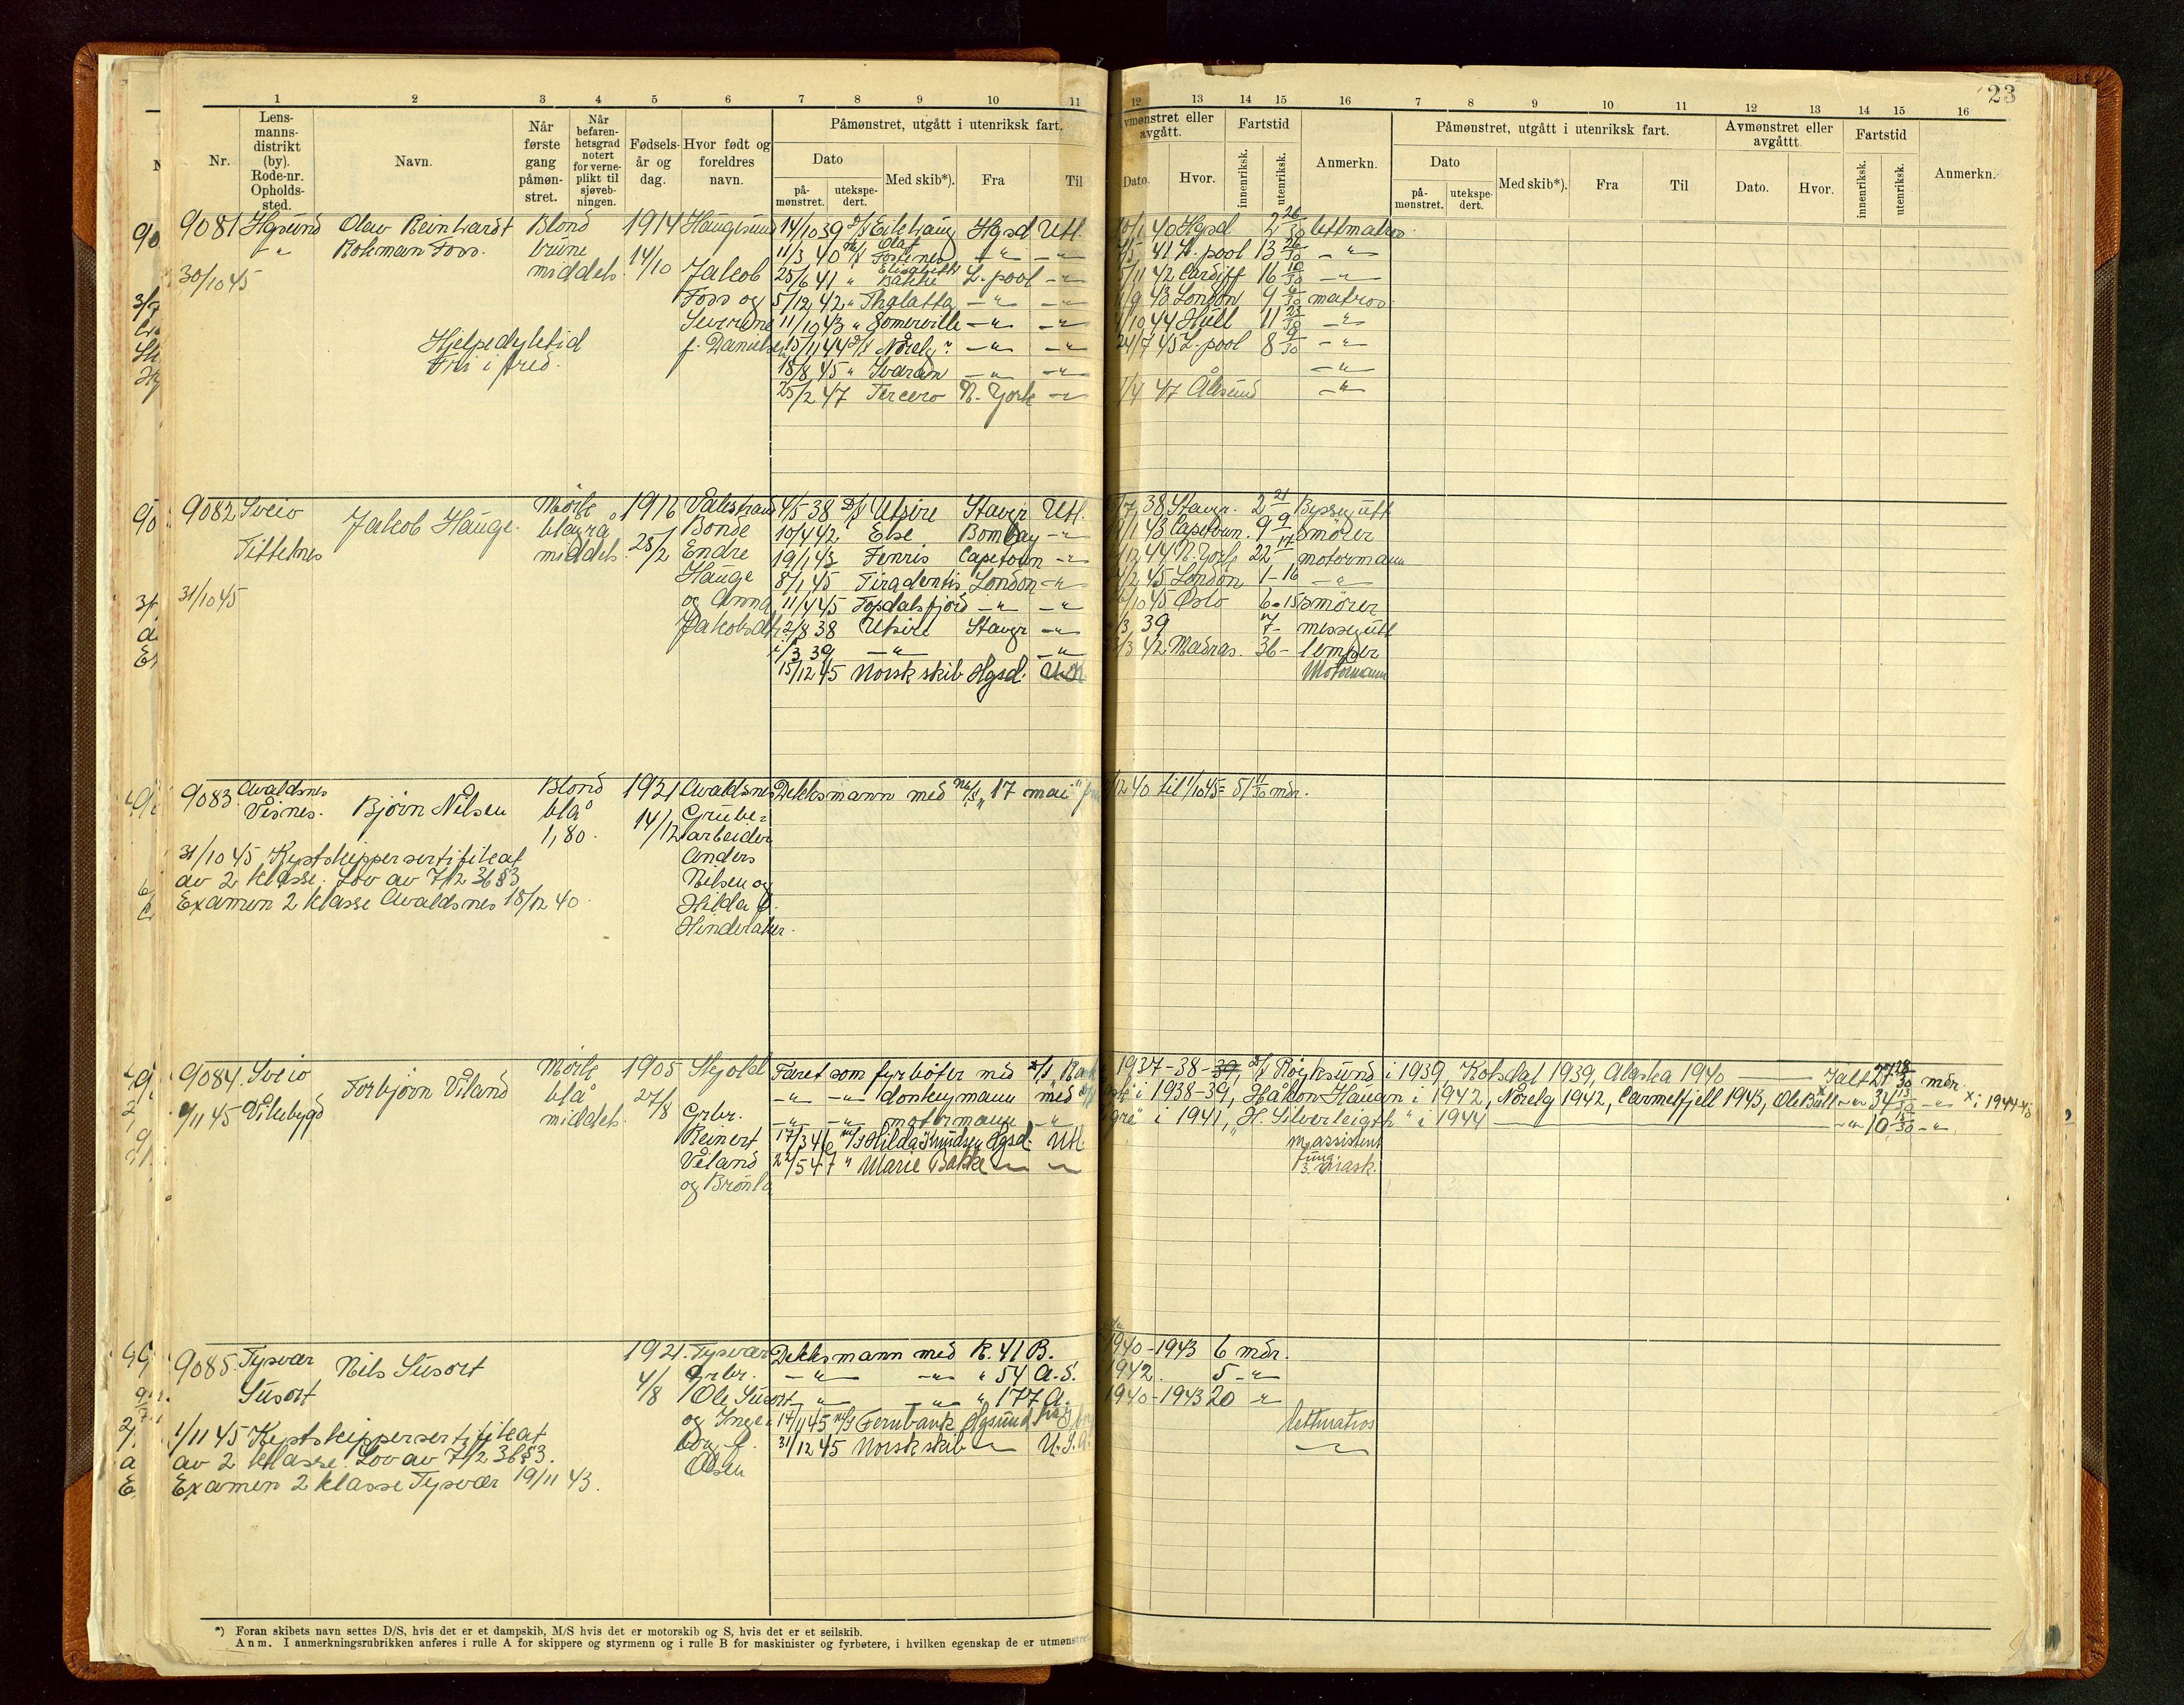 23
1 2 3 4 5 6 7 8 9 10 11 12 13 14 15 16 7 8 9 10 11 12 13 14 15 16
Nr.
Lens-
manns-
distrikt
(by).
Rode-nr.
Opholds-
sted.
Navn.
Når
første
gang
påmøn-
stret.
Når
befaren-
hetsgrad
notert
for verne-
plikt til
sjøveb-
ningen.
Fødsels-
år og
dag.
Hvor født og
foreldres
navn.
Påmønstret, utgått i utenriksk fart.
Dato
på-
mønstret.
utekspe-
dert.
Med skib*).
Fra
Til
vmønstret eller
avgått.
Dato.
Hvor.
Fartstid
innenriksk.
utenriksk.
Anmerkn.
Påmønstret, utgått i utenriksk fart.
Dato
på-
mønstret.
utekspe-
dert.
Med skib*).
Fra
Til
Avmønstret eller
avgåttt
Dato.
Hvor.
Fartstid
innenriksk.
utenriksk.
Anmerkn.
9081 Hgsund Olav Reinhardt Blond 1914 Haugesund 14/10 39 D/S Eikhaug Hgsd Utl. 10/1 40 Hgsd 2 26/30 lettmatros
-"- Rokman Foss. brune 14/10 11/3 40 M/S Olaf Fostenes -"- -"- 4/5 41 L.pool 13 26/30 -"-
30/10 45 middels Jakob 25/6 41 " Elisabeth Bakke L.pool -"- 5/11 42 Cardiff 16 10/30 -"-
Foss og 5/12 42 " Thalatta -"- -"- /9 43 London 9 6/30 matros
Severine 11/10 43 " Somerville -"- -"- /10 44 Hull 11 23/30 -"-
Hjelpedyktid f. Danielsen 15/11 44 D/S Nørelg -"- -"- 24/7 45 L.pool 8 9/30 -"-
Fri i fred. 18/8 45 " Svaran -"- -"- -"-
25/2 47 Tercero N. York -"- /4 47 Ålesund -"-
9082 Sveio Jakob Hauge. Mørk 1916 Vålestrand 4/5 38 D/S Utsire Stavgr Utl. /7 38 Stavgr. 2 21 Byssegutt
blågrå 28/2 Bonde 10/4 42 Else Bombay -"- /1 43 Capetown. 9 9 smører
Tittelnes middels Endre 19/1 43 Fenris Capetown -"- /12 44 N.York 22 17 motormann
Hauge 8/1 45 Tiradentis London -"- /2 45 London 1-16 -"-
31/10 45 og Anna 11/4 45 Topdalsfjord -"- -"- /10 45 Oslo 6-15 smører
Jakobsdtr 2/8 38 Utsire Stavgr -"- /3 39 7- messegutt
1/3 39 -"- -"- /3 42 Madras. 36- lemper
15/12 45 Norsk skib Hgsd. Utl. Motormann
9083 Avaldsnes Bjørn Nilsen Blond 1921 Avaldsnes Dekksmann med M/S "17 mai" fra /12 40 til 1/10 45 = 51 11/30 mdr.
Visnes. blå 14/12 Grube-
1,80. arbeider
31/10 45 Kystskippersertifikat Anders
av 2 klasse. Lov av 7/2 36 §3 Nilsen og
Examen 2 klasse Avaldsnes 18/12 40. Hilda f.
Hinderaker.
9084 Sveio Torbjørn Våland Mørk 1905 Skjold Faret som fyrbøter med D/S 1937-38-39, D/S Røyksund i 1939, Kotsdal 1939, Alaska 1940 —— Ialt 27 28/30 mdr.
blå 27/8 -"- -"- donkeymann med i 1938-39, Håkon Haugn i 1942, Nørelg 1942, Carmelfjell 1943, Ole Bull -"- 34 13/30 -"- x i 1944-45
9/11 45 Vikebygd middels. Grbr. -"- -"- motormann -"- i 1941, "H. Silverleigth" i 1944 —— -"- 10 15/30 -"-
Reinert 17/3 46 M/S Hilda Knudsen Hgsd. Utl. m.assistent
Våland 22/5 47 " Marie Bakke -"- -"- fung. 3. mask.
og Brønla
9085. Tysvær Nils Susort 1921. Tysvær Dekksmann med R. 41 B. 1940-1943 6 mdr.
4/8 Grbr. -"- -"- " 54 A.S. 1942. 5 -"-
Susort Ole Susort -"- -"- " 177 A. 1940-1943 20 -"-
og Inge- 17/11 45 M/S Fernbank Hgsund lettmatros
1/11 45 Kystskippersertifikat borg f. 31/12 45 Norsk skib -"- U.S.A. -"-
av 2 klasse. Lov av 7/2 36 §3. Olsen
Examen 2 klasse Tysvær 19/11 43.
*) Foran skibets navn settes D/S, hvis det er et dampskib, M/S hvis det er motorskib og S, hvis det er et seilskib.
Anm. I anmerkningsrubrikken anføres i rulle A for skippere og styrmenn og i rulle B for maskinister og fyrbøtere, i hvilken egenskap de er utmønstret